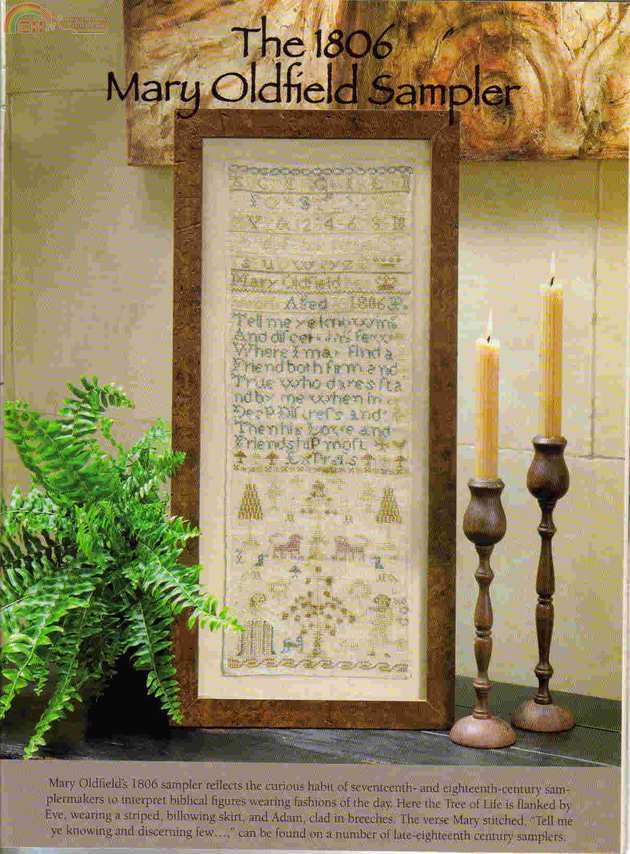 The 1806
Mary Oldfield Sampler
2 4 6 8 10
Mary Oldfield
Aged 1806
Tell me ye knowing
And discerning few
Where I may find a
Friend both firm and
True Who dares sta
nd by me When in
Deep Distress and
Then his Love and
Friendship most
Mary Oldfield's 1806 sampler reflects the curious habit of seventeenth- and eighteenth-century sam-
plermakers to interpret biblical figures wearing fashions of the day. Here the Tree of Life is flanked by
Eve, wearing a striped, billowing skirt, and Adam, clad in breeches. The verse Mary stitched, “Tell me
ye knowing and discerning few...,” can be found on a number of late-eighteenth century samplers.